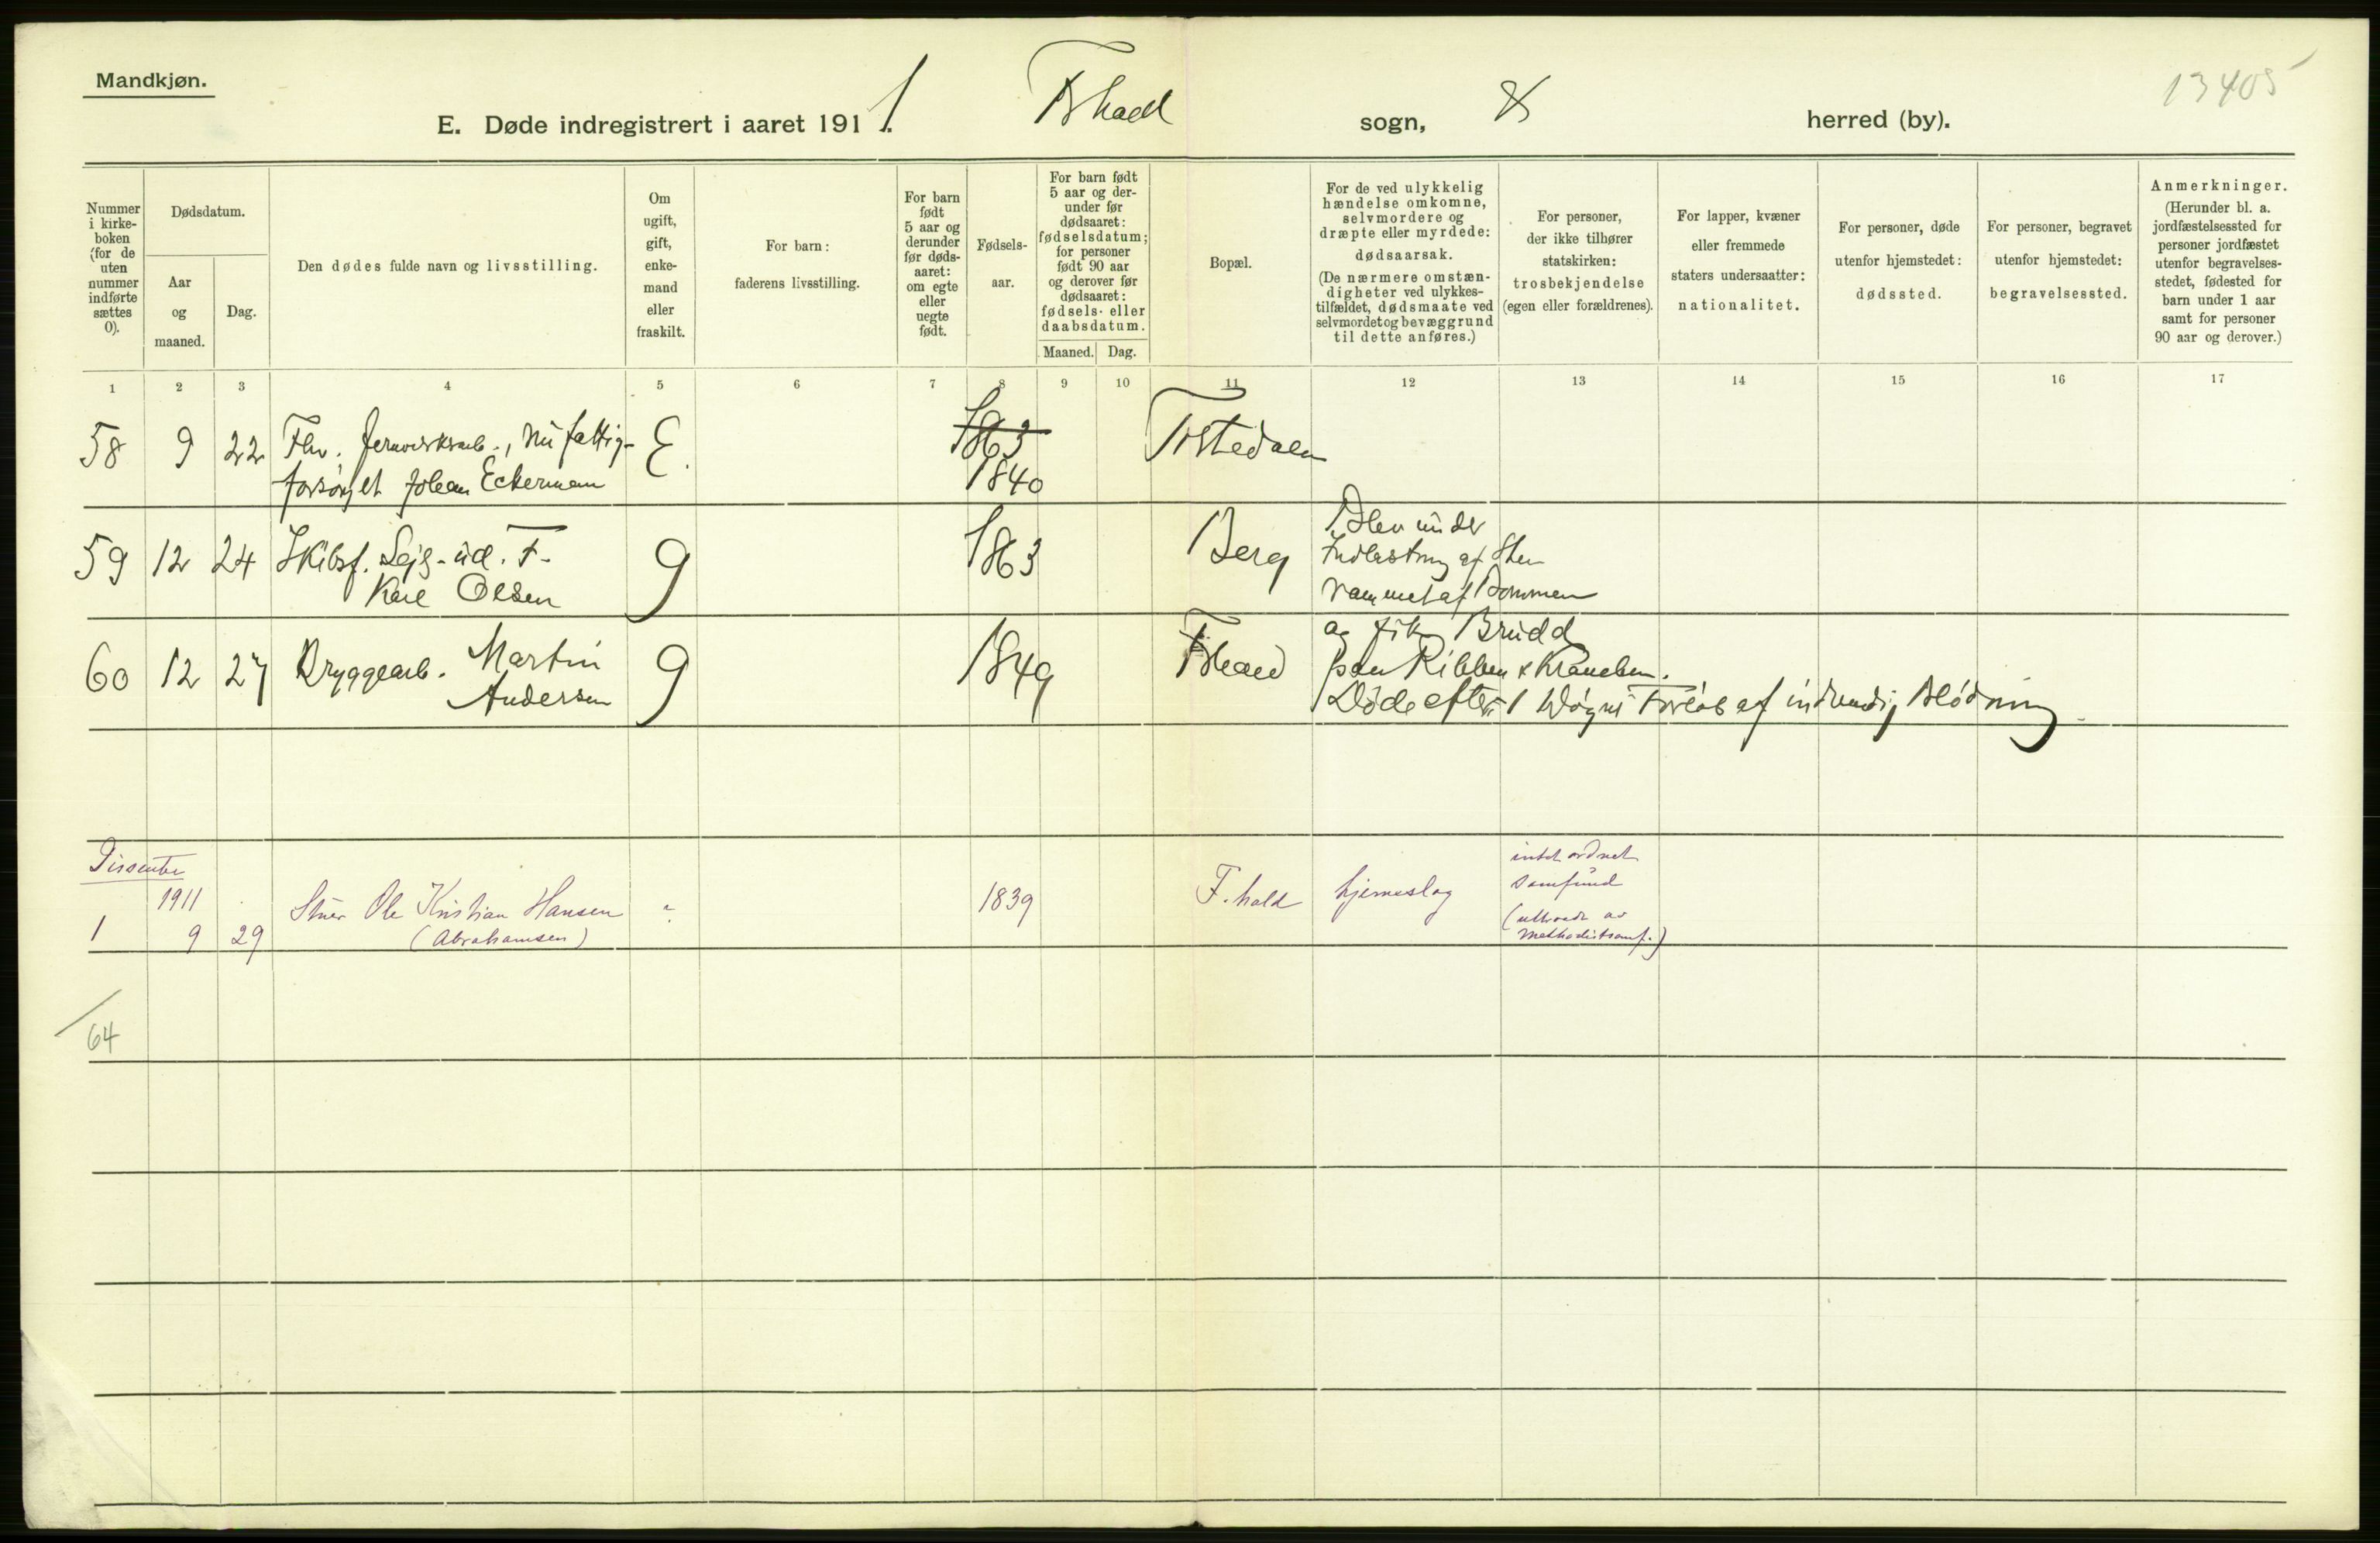 Mandkjøn.
13405
E. Døde indregistrert i aaret 1911. Fr.hald sogn, & herred (by).
Nummer i kirke-boken (for de uten nummer indførte sættes 0).
Dødsdatum.
Aar og maaned.
Dag.
Den dødes fulde navn og livsstilling.
Om ugift, gift, enke-mand eller fraskilt.
For barn: faderens livsstilling.
For barn født 5 aar og derunder før døds-aaret: om egte eller uegte født.
Fødsels-aar.
For barn født 5 aar og der-under før dødsaaret: fødselsdatum; for personer født 90 aar og derover før dødsaaret: fødsels- eller daabsdatum.
Maaned. Dag.
Bopæl.
For de ved ulykkelig hændelse omkomne, selvmordere og dræpte eller myrdede: dødsaarsak. (De nærmere omstæn-digheter ved ulykkes-tilfældet, dødsmaate ved selvmordet og bevæggrund til dette anføres.)
For personer, der ikke tilhører statskirken: trosbekjendelse (egen eller forældrenes).
For lapper, kvæner eller fremmede staters undersaatter: nationalitet.
For personer, døde utenfor hjemstedet: dødssted.
For personer, begravet utenfor hjemstedet: begravelsessted.
Anmerkninger. (Herunder bl. a. jordfæstelsessted for personer jordfæstet utenfor begravelses-stedet, fødested for barn under 1 aar samt for personer 90 aar og derover.)
1 2 3 4 5 6 7 8 9 10 11 12 13 14 15 16 17
58 9 22 Fhv. Jernverksarb., nu fattig- E. 1863 Tistedalen
forsørget Johan Eckerman 1840
59 12 24 Skibsf. Sejls-ud. F- g 1863 Berg Blev under
Karl Olsen Indlastning af Sten
rammet af Bommen
60 12 27 Bryggearb. Martin g 1849 Fr.hald og fik Brudd
Andersen paa Ribben & Kraneben.
Døde efter 1 Døgns Forløb af indvendig Blødning
Dissenter
1911
1 9 29 Stuer Ole Kristian Hansen - 1839 F.hald hjerneslag intet ordnet
(Abrahamsen) samfund
(uttraadt av
Methodistsamf.)
64